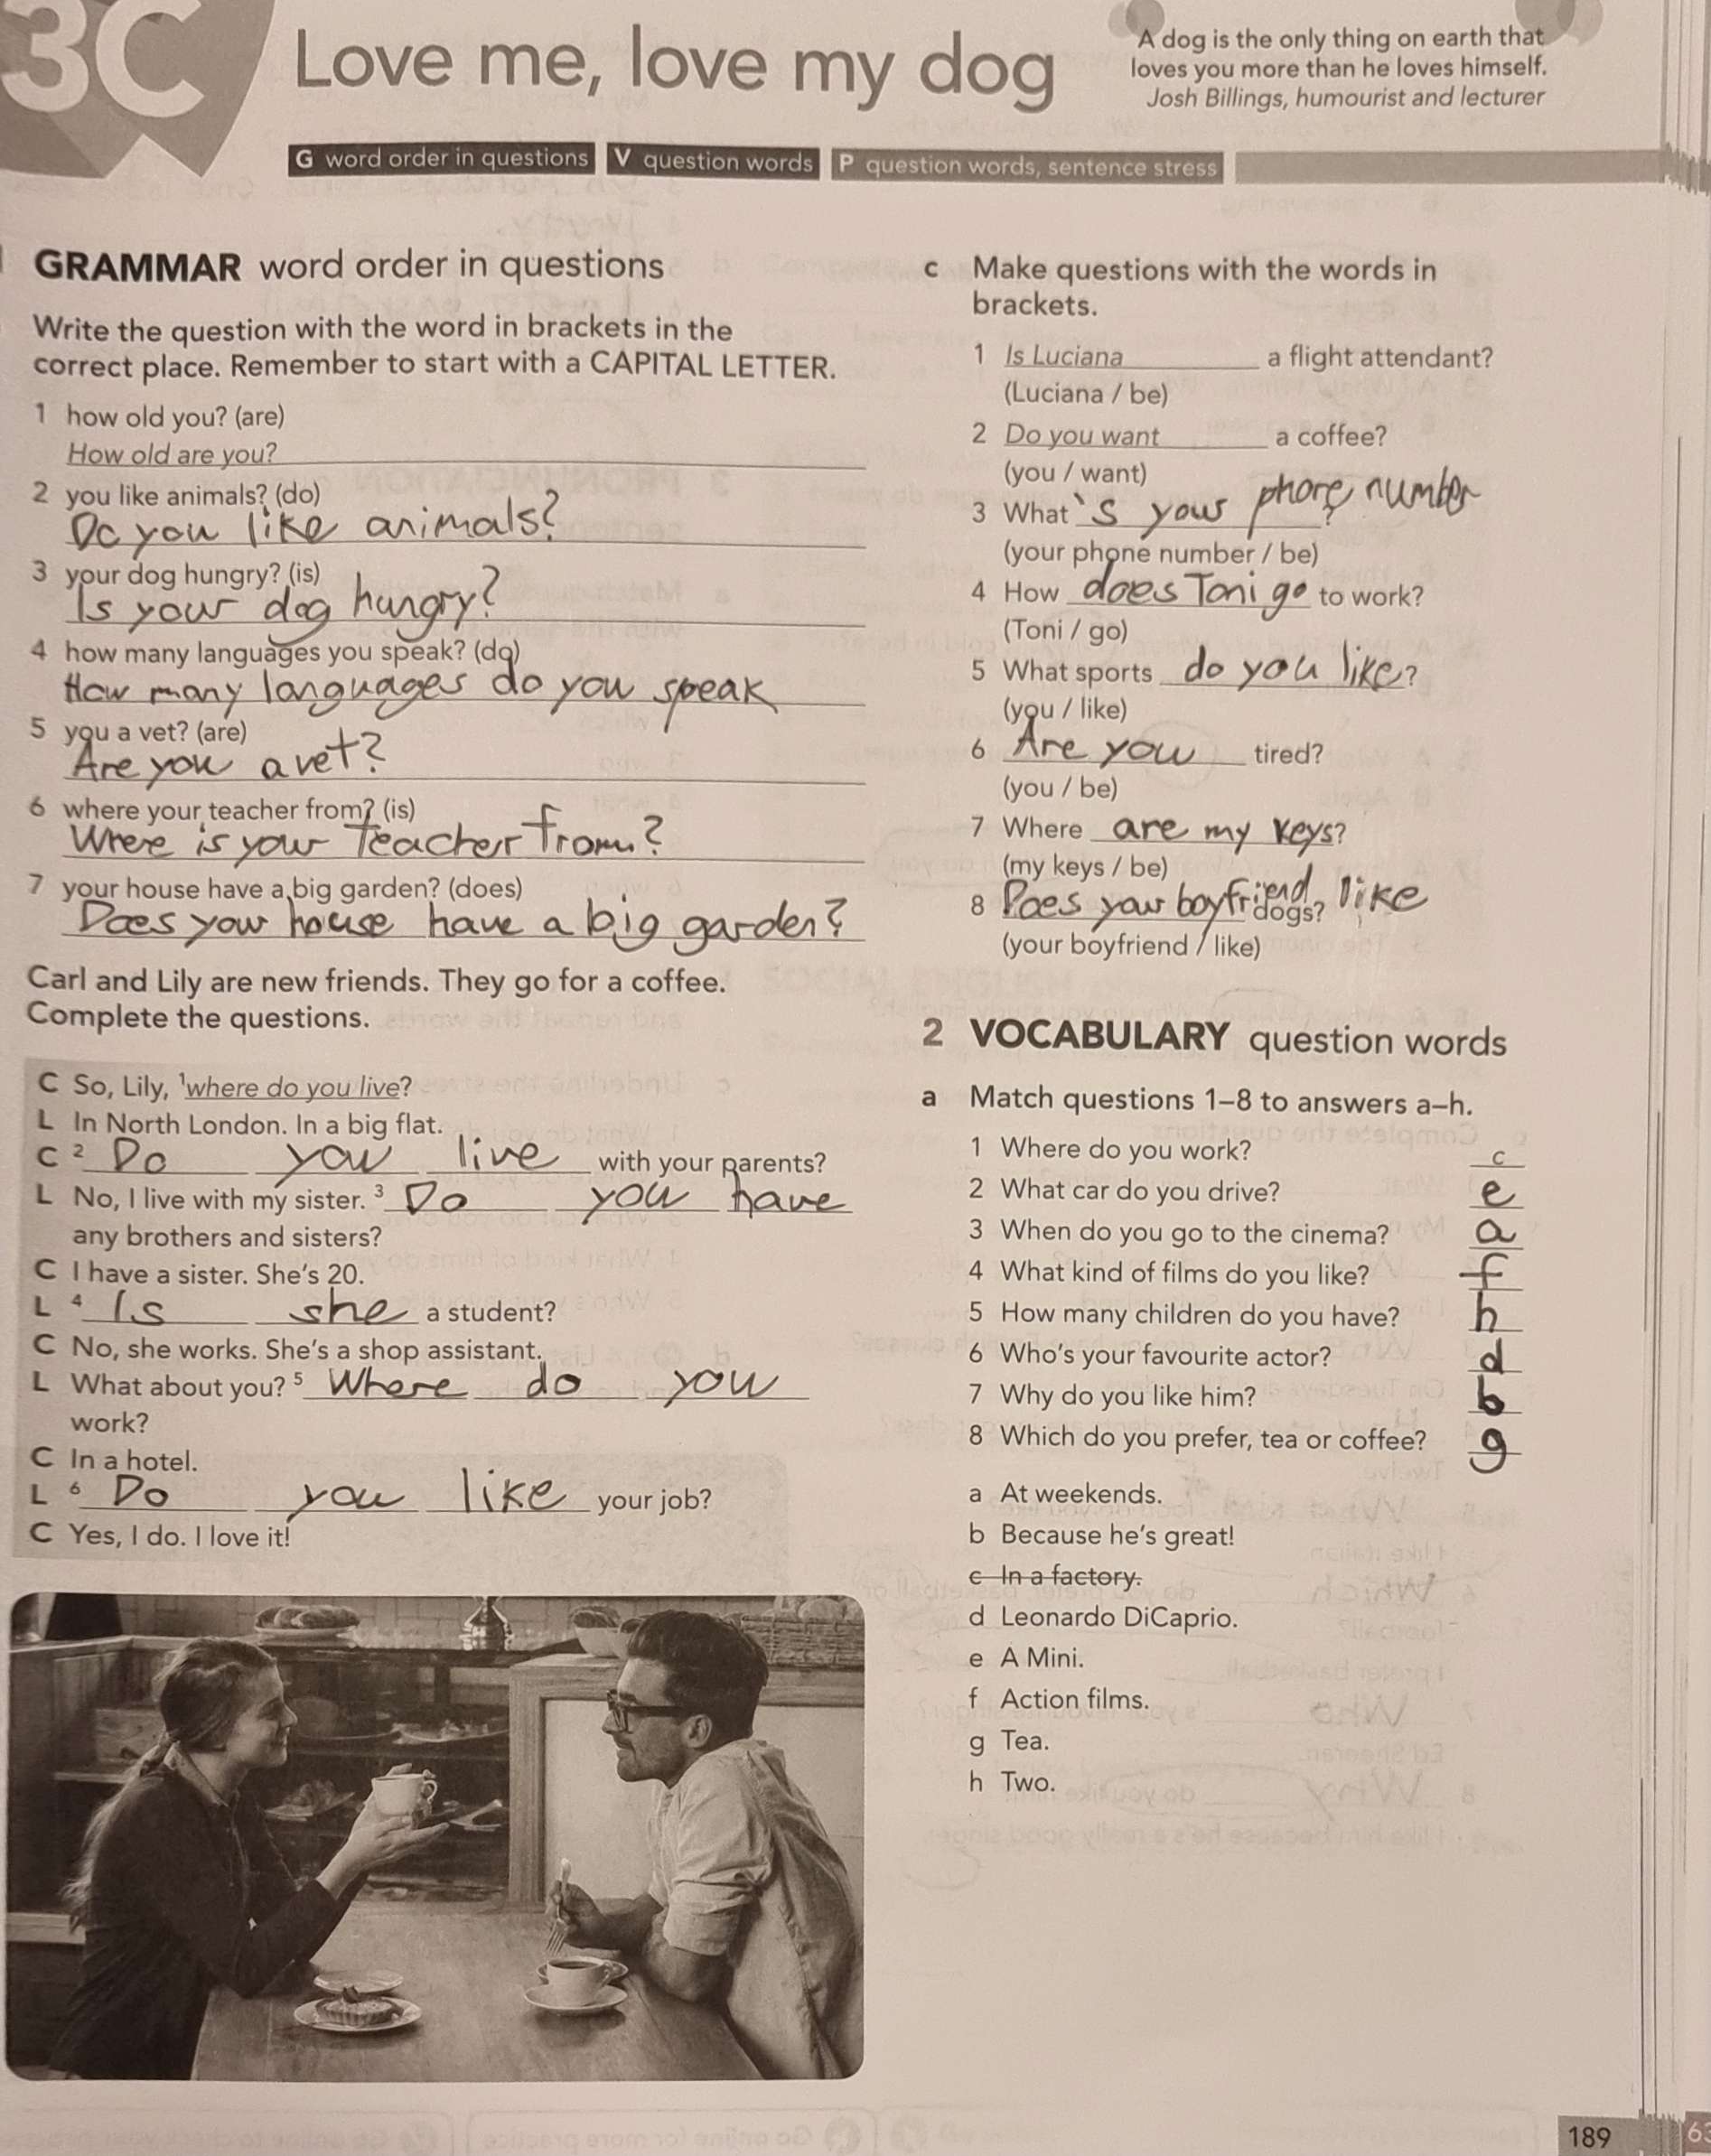 3C
Love me, love my dog
A dog is the only thing on earth that
loves you more than he loves himself.
Josh Billings, humourist and lecturer
G word order in questions V question words P question words, sentence stress
GRAMMAR word order in questions
Write the question with the word in brackets in the
correct place. Remember to start with a CAPITAL LETTER.
1 how old you? (are)
How old are you?
2 you like animals? (do)
Do you like animals?
3 your dog hungry? (is)
Is your dog hungry?
4 how many languages you speak? (do)
How many languages do you speak
5 you a vet? (are)
Are you a vet?
6 where your teacher from? (is)
Where is your teacher from?
7 your house have a big garden? (does)
Does your house have a big garden?
Carl and Lily are new friends. They go for a coffee.
Complete the questions.
C So, Lily, 1where do you live?
L In North London. In a big flat.
C 2 Do you live with your parents?
L No, I live with my sister. 3 Do you have
any brothers and sisters?
C I have a sister. She's 20.
L 4 Is she a student?
C No, she works. She's a shop assistant.
L What about you? 5 Where do you
work?
C In a hotel.
L 6 Do you like your job?
C Yes, I do. I love it!
c Make questions with the words in
brackets.
1 Is Luciana a flight attendant?
(Luciana / be)
2 Do you want a coffee?
(you / want)
3 What 's your phone number?
(your phone number / be)
4 How does Toni go to work?
(Toni / go)
5 What sports do you like?
(you / like)
6 Are you tired?
(you / be)
7 Where are my keys?
(my keys / be)
8 Does your boyfriend like dogs?
(your boyfriend / like)
2 VOCABULARY question words
a Match questions 1–8 to answers a–h.
1 Where do you work? c
2 What car do you drive? e
3 When do you go to the cinema? a
4 What kind of films do you like? f
5 How many children do you have? h
6 Who's your favourite actor? d
7 Why do you like him? b
8 Which do you prefer, tea or coffee? g
a At weekends.
b Because he's great!
c In a factory.
d Leonardo DiCaprio.
e A Mini.
f Action films.
g Tea.
h Two.
189